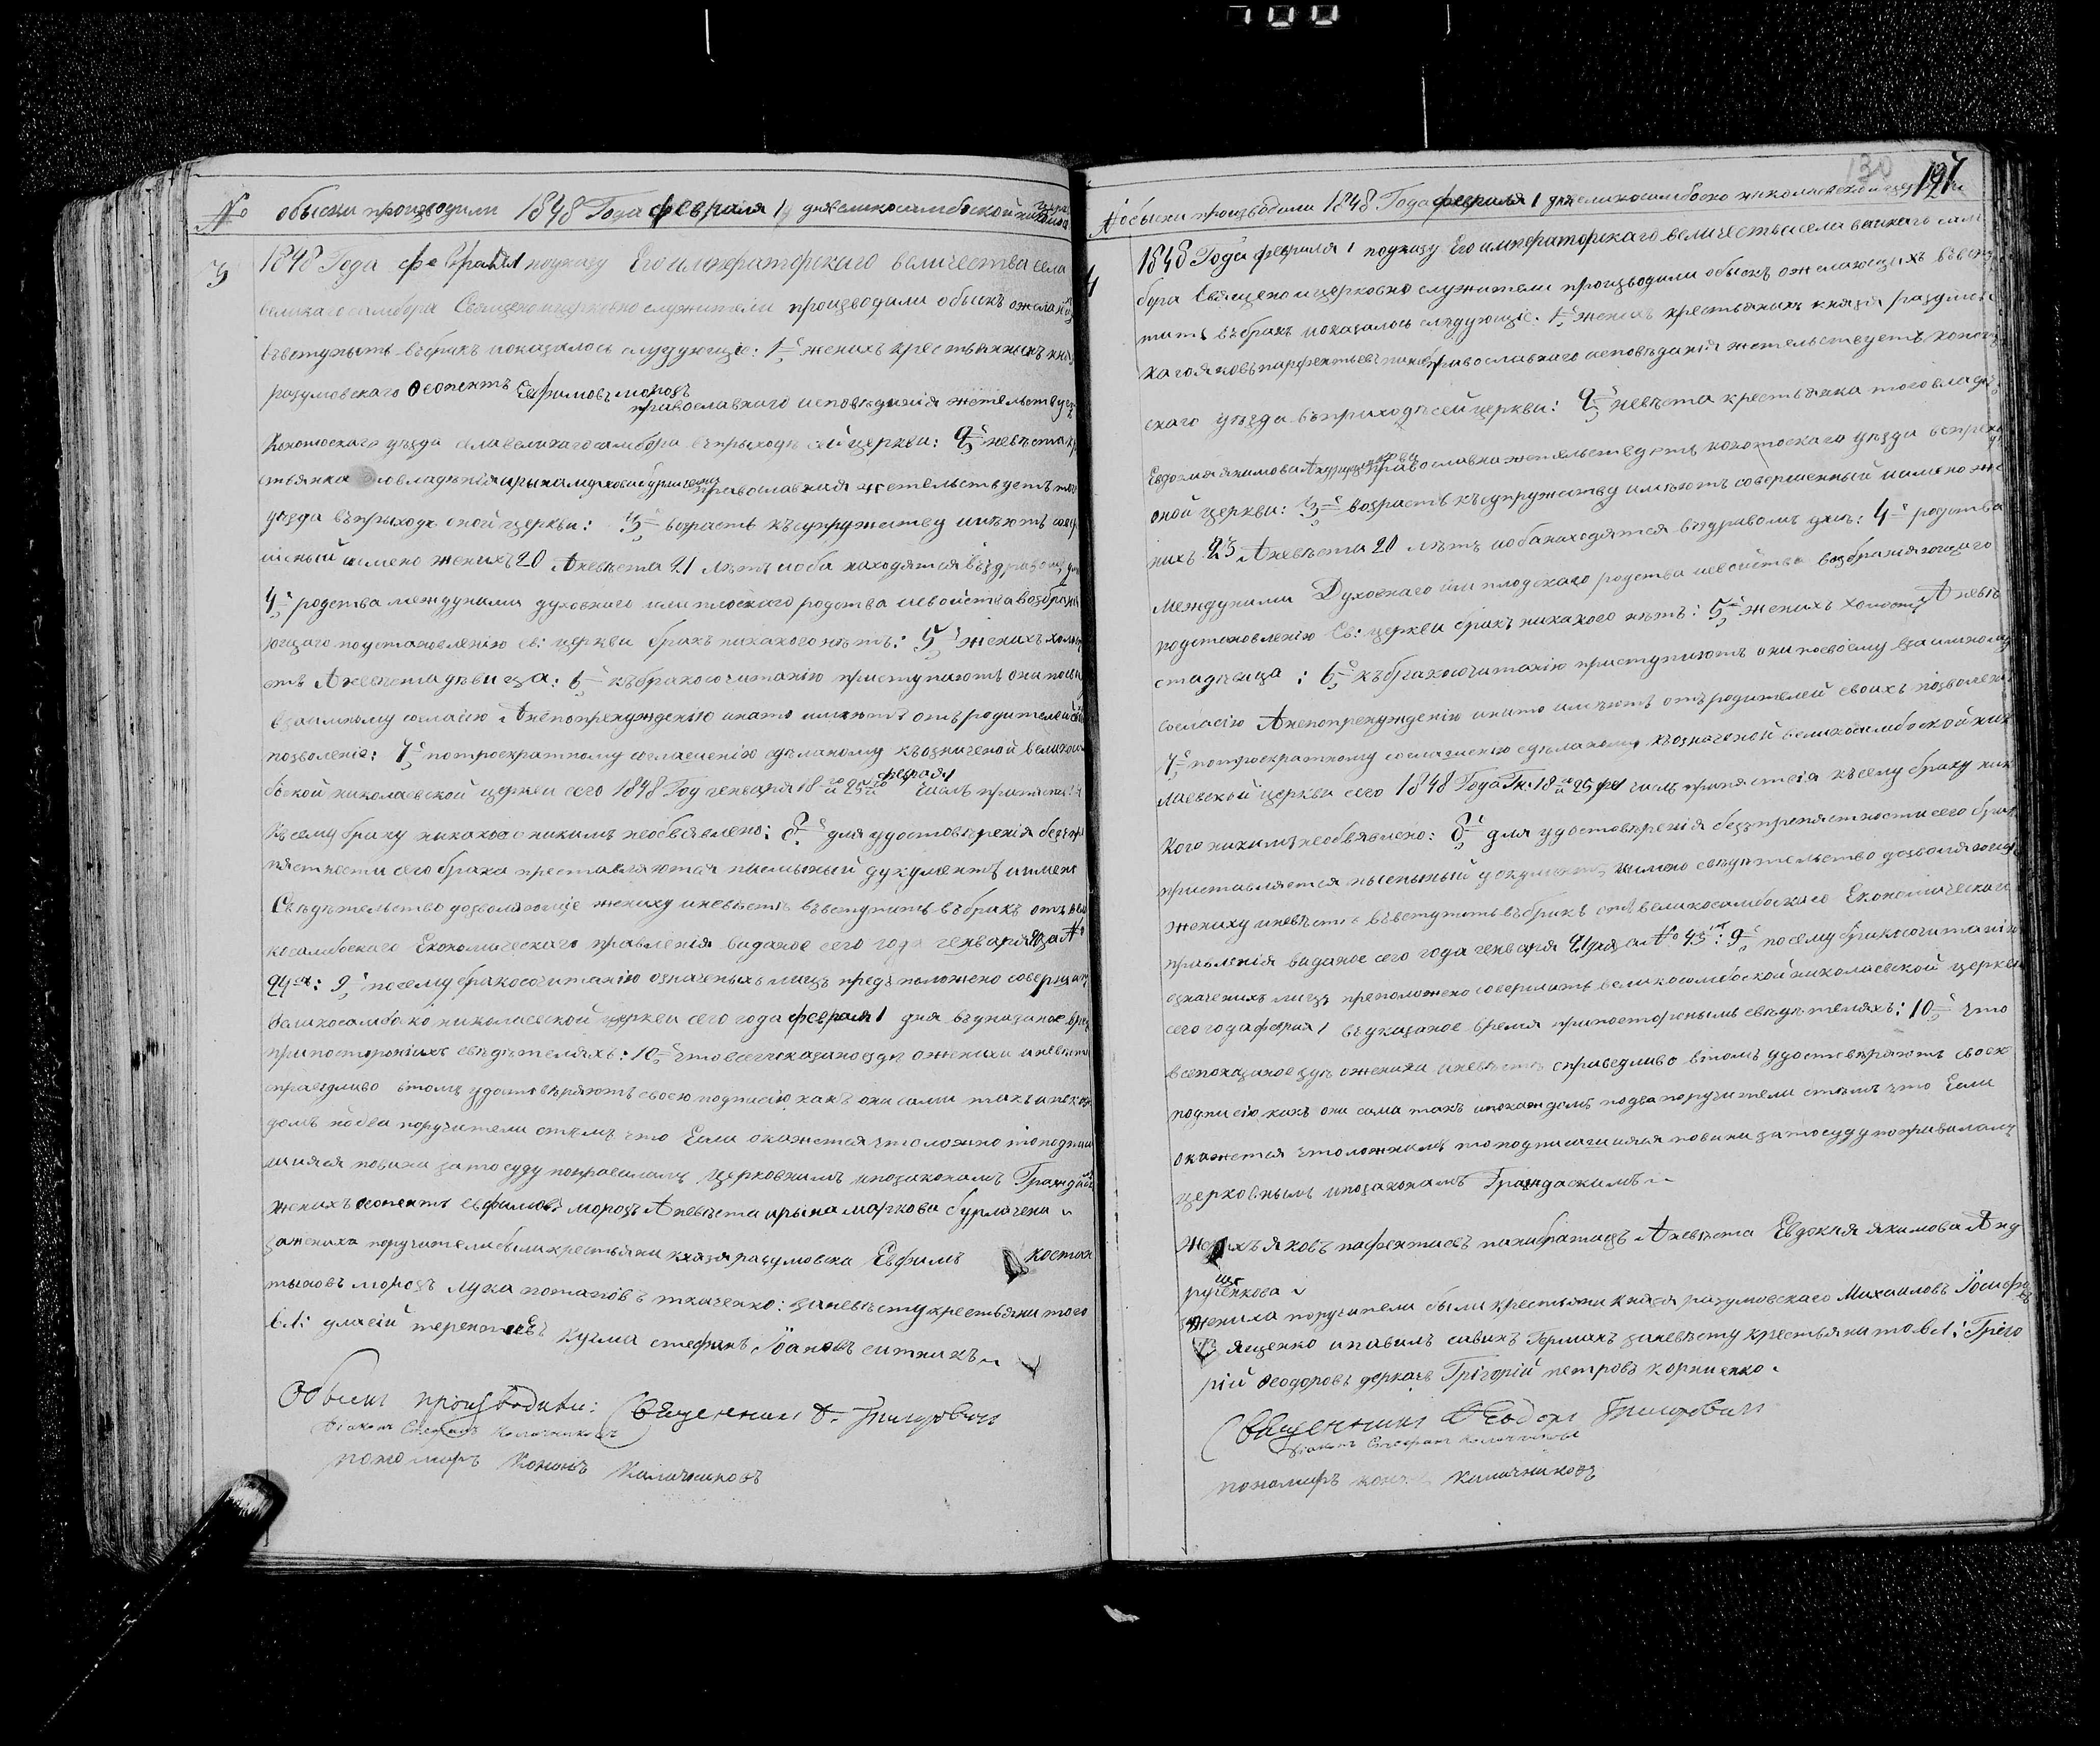 № обыски производили 1848 Года февраля 1 дня великосамбоской
3
1848 Года февраля 1 по указу Его императорскаго величества села
великаго самбора Священо и церковно служители производили обыскъ о желающ
въвступить въбракъ и оказалось слудующие: 1е женихъ крестьянинъ кня
разумовскаго Феопентъ Евфимовъ морозъ
православнаго исповеданія жетельствуетъ
Конотоскаго уезда села великаго самбора въприходе сей церкви: 2е невеста кр
стьянка того владенія ирына маркова бурлачена православная жетельствуетъ того
уезда въприходе оной церкви: 3е возрасть къ супружеству имеютъ совер
шеный имено женихъ 20 А невеста 21 летъ и оба находятся въздравомъ ум
4е родства между ними духовнаго или плоскаго родства исвойства возбраня
ющаго по становленію св: церкви бракъ никакого нетъ: 5е женихъ холос
отъ А невеста девица: 6е къбракосочитанію приступаютъ они посвое
взаимному согласію А непопренуждению инато имеютъ отъродителей
позволеніе: 7е потроекратному согласенію зделаному въозначеной великос
боской николаевской церкви сего 1848 Год генваря 18 и 25 и февраля 1 числъ препятст
къ сему браку никакого никимъ необъявлено: 8е для удостоверенія безъпре
пятствости сего брака преставляются писменый дукументъ имено
Сведетельство дозволяюще жениху иневесте въвступить въбракъ отъ вели
косамбоскаго Економическаго правленія виданое сего года генваря за №
24м: 9е посему бракосочитанію означеныхъ лицъ предположено соверш
великосамбоко николаевской церкви сего года февраля 1 дня въуказаное вре
припостороніихъ сведетеляхъ: 10е что все показано зде о женихи и невест
справедливо втомъ удостоверяютъ своею подписію какъ они сами такъ и по каж
домъ подва поручители стемъ что Если окажется что ложно то подпи
шияся повини зато суду поправиламъ церковнимъ и позаконамъ Граждан
женихъ Феопентъ евфимовъ морозъ А невеста ирына маркова бурлачена
зажениха поручители были крестьяни князя разумовска Евфимъ костан
тыновъ морозъ лука потаповъ ткаченко: заневесту крестьяни того
вл: улясій терентиевъ Кузма стефанъ, Іоановъ ситникъ
Обыски производили: Священникъ Ф. Григоровичъ
діаконъ Стефанъ Калачниковъ
пономарь Кононъ Калачниковъ
130
127
№ обыски производили 1848 Года февраля 1 дня великосамбоско николаевской церкви
4
1848 Года февраля 1 по указу Его императорскаго величества села великаго сам
бора Священо и церковно служители производили обыскъ о желающихъ въвсту
пить въбракъ и оказалось следующие: 1е женихъ крестьянинъ князя разумов
скаго яковъ парфентьевъ православнаго исповеданія жетельствуетъ конотоп
скаго уезда въприходе сей церкви: 2е невеста крестьянка того владе
Евдокия якимова Андрущенкова православна жетельствуетъ конотоскаго уезда
оной церкви: 3е возрасть къ супружеству имеютъ совершенный имено же
нихъ 23 А невеста 20 летъ и оба находятся въздравомъ уме: 4е родства
между ними Духовнаго или плодскаго родства исвойства возбраняющаго
по становленію Св: церкви бракъ никакого нетъ: 5е женихъ холостъ А неве
ста девица: 6е къбракосочитанію приступають они посвоему взаимному
согласію А непопренуждению инато имеютъ отъродителей своихъ позволені
7е потроекратному согласенію зделаному въозначеной великосамбоской нико
лаевской церкви сего 1848 Года Ген: 18 и 25 фев числъ препятствія къ сему браку ник
кого никимъ необъявлено: 8е для удостоверенія безъпрепятствости сего брака
приставляется писменый докуменъ имено сведетельство дозволяюще
жениху иневесте въвступить въбракъ отъ великосамбоскаго Економическаго
правленія виданое сего года генваря 21 дня за № 43м: 9е посему бракосочитанію
означенихъ лицъ преположено совершить великосамбоской николаевской церкви
сего года феврал 1 въуказаное время припосторонымъ сведетеляхъ: 10е что
всепоказаное зде о жениха и невесте справедливо втомъ удостоверяютъ своею
подписію какъ они сами такъ и покаждомъ подва поручители стемъ что Если
окажется что ложнымъ то подписавшияся повини зато суду поправиламъ
церковнымъ и позаконамъ Граждаскимъ
Женихъ яковъ парфентиевъ А невеста Евдокия якимова Анд
рущенкова
жениха поручители были крестьяни князя разумовскаго Михаиловъ Іосифо
ященко и павилъ савинъ Германъ заневесту крестьяни то вл: Гріго
рій Феодоровъ деркачъ Грігорій петровъ корниенко
Священникъ Феодоръ Григоровичъ
діаконъ Стефанъ Калачниковъ
пономарь Кононъ Калачниковъ